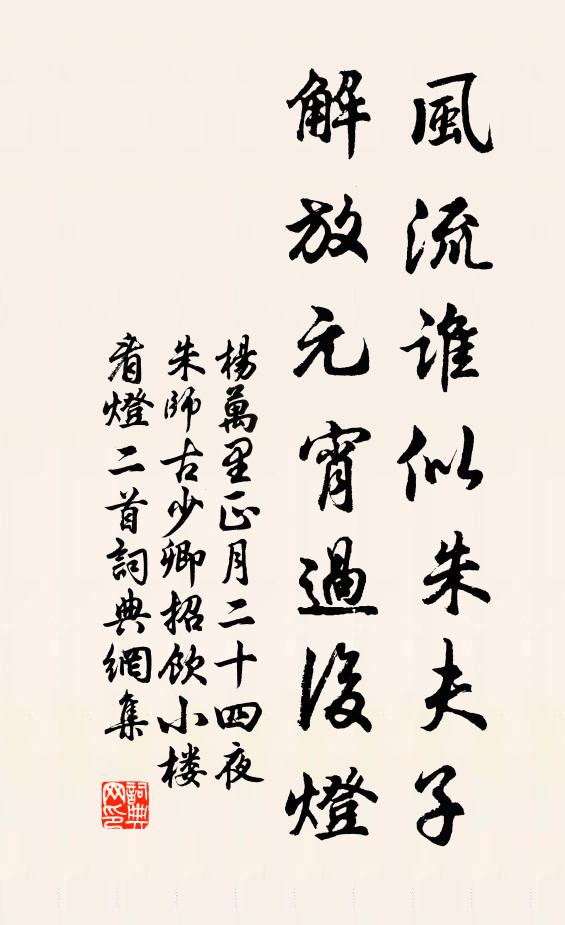 風流誰似朱夫子
解放元宵過後燈
楊萬里正月二十四夜
朱師古少卿招飲小楼
看燈二首詞典網集
詞典
网印